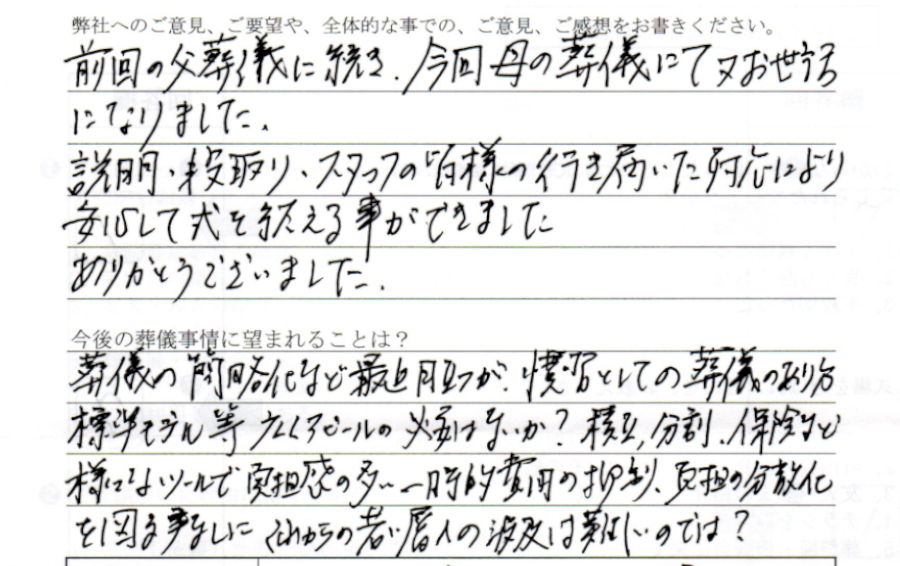 弊社へのご意見、ご要望や、全体的な事での、ご意見、ご感想をお書きください。
前回の父葬儀に続き、今回母の葬儀にて又お世話
になりました。
説明・段取り・スタッフの皆様の行き届いた対応により
安心して式を終える事ができました
ありがとうございました。
今後の葬儀事情に望まれることは？
葬儀の簡略化など最近目立つが、慣習としての葬儀の
標準モデル等 アピールの必要はないか？積立、分割、保険など
様々なツールで負担感の多い一時的費用の抑制、負担の分散化
を図る事なしに これからの若い層への波及は難しいのでは？